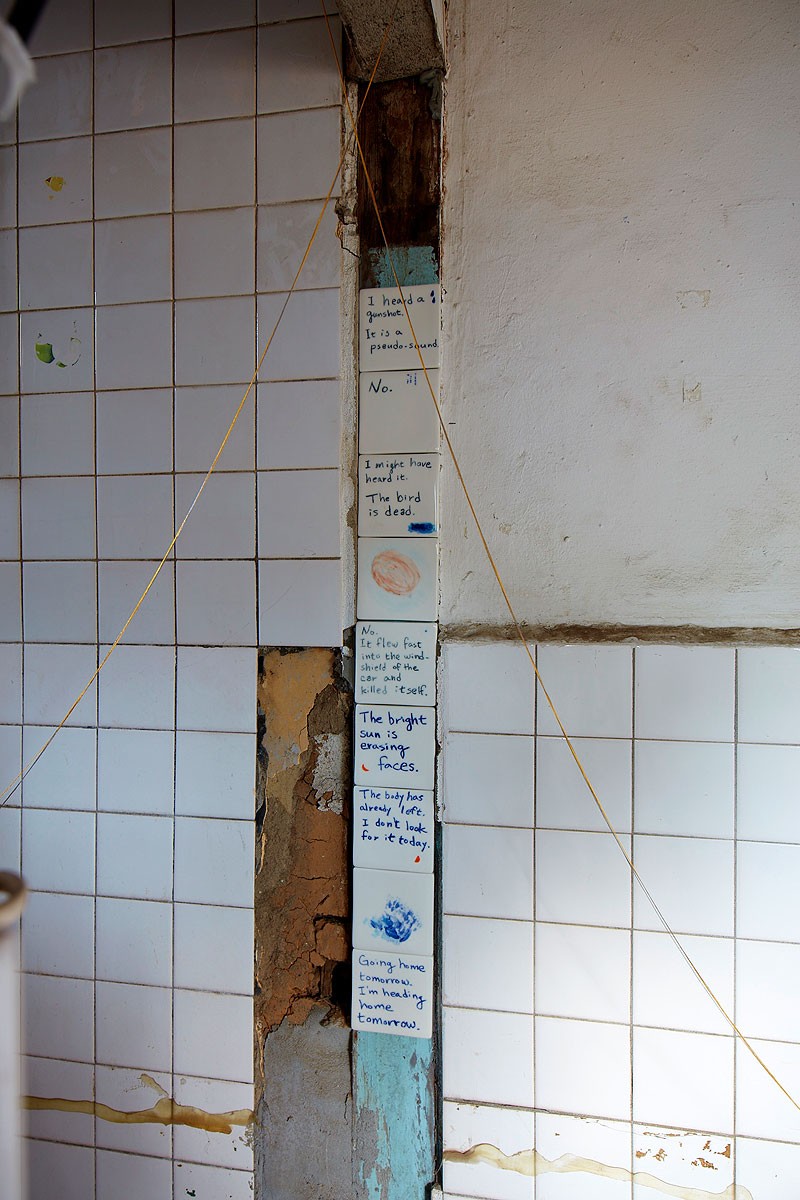 I heard a
gunshot.
It is a
pseudo-sound
No.
I might have
heard it.
The bird
is dead.
No.
It flew fast
into the wind-
shield of the
car and
killed itself.
The bright
sun is
erasing
faces.
The body has
already left.
I don't look
for it today.
Going home
tomorrow.
I'm heading
home
tomorrow.